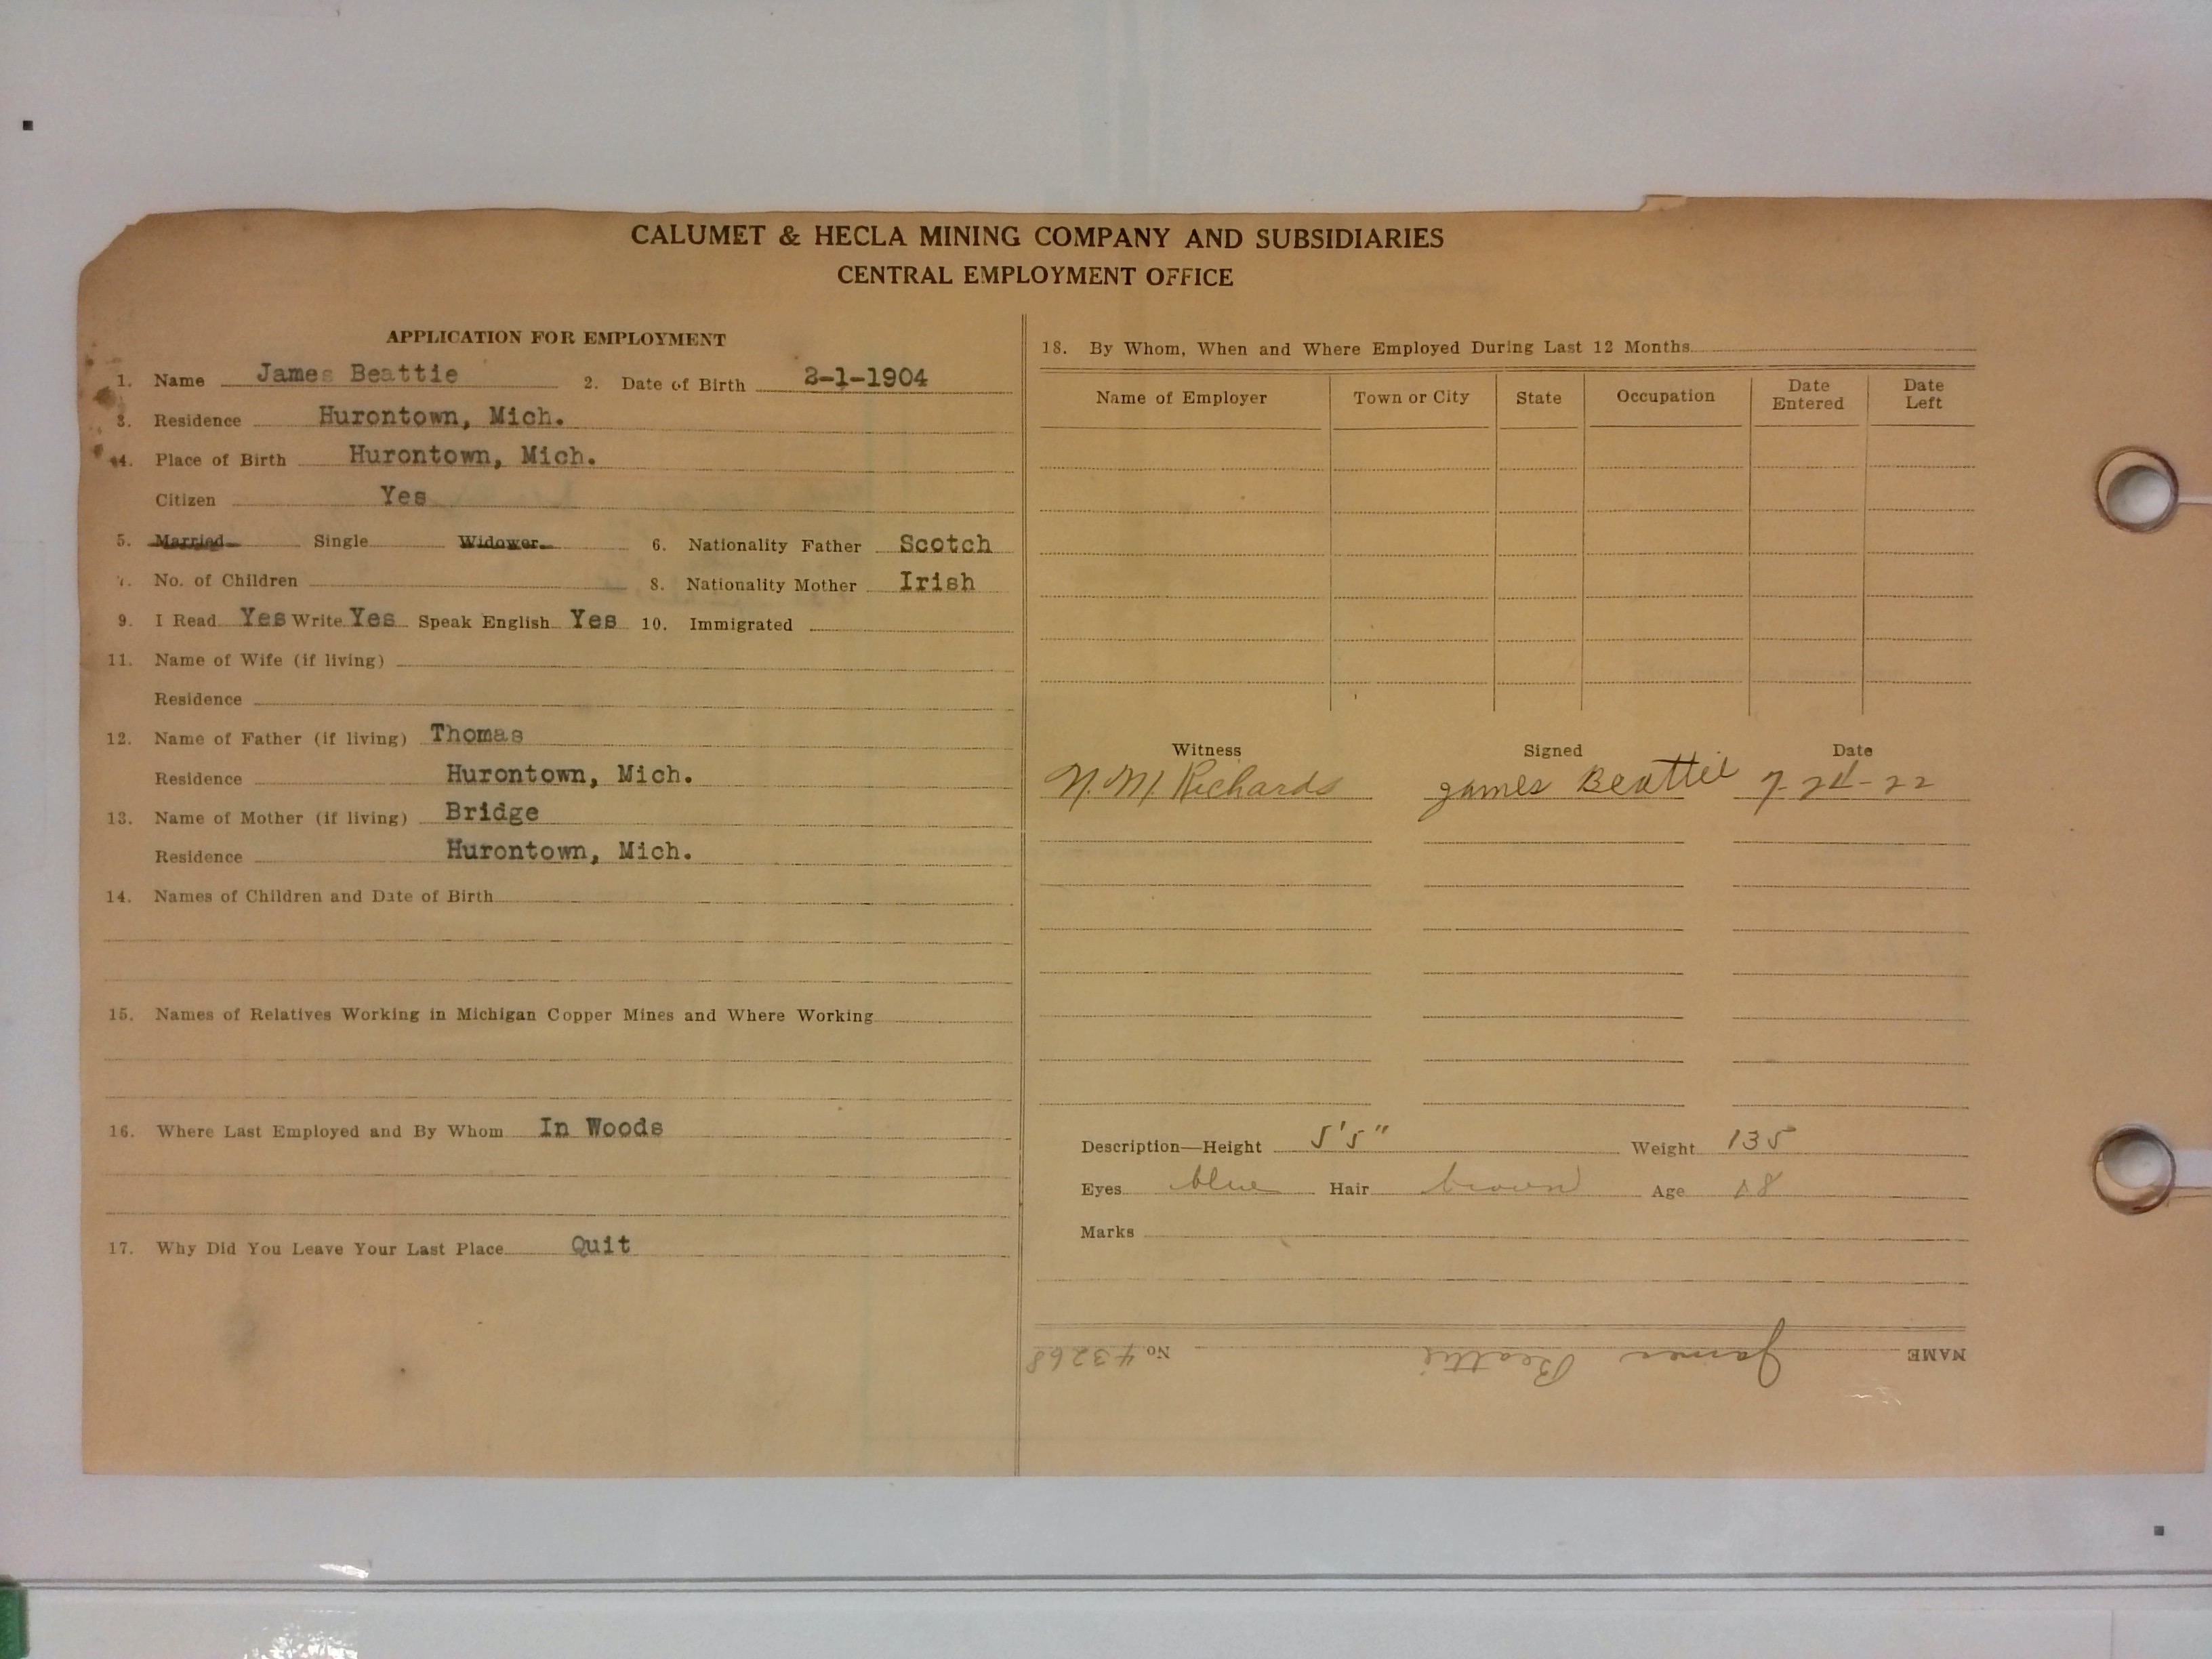 CALUMET & HECLA MINING COMPANY AND SUBSIDIARIES
CENTRAL EMPLOYMENT OFFICE
APPLICATION FOR EMPLOYMENT
1. Name James Beattie 2. Date of Birth 2-1-1904
3. Residence Hurontown, Mich.
4. Place of Birth Hurontown, Mich.
Citizen Yes
5. Married Single Widower 6. Nationality Father Scotch
7. No. of Children 8. Nationality Mother Irish
9. I Read Yes Write Yes Speak English Yes 10. Immigrated
11. Name of Wife (if living)
Residence
12. Name of Father (if living) Thomas
Residence Hurontown, Mich.
13. Name of Mother (if living) Bridge
Residence Hurontown, Mich.
14. Names of Children and Date of Birth
15. Names of Relatives Working in Michigan Copper Mines and Where Working
16. Where Last Employed and By Whom In Woods
17. Why Did You Leave Your Last Place Quit
18. By Whom, When and Where Employed During Last 12 Months
Name of Employer Town or City State Occupation Date Entered Date Left
Witness Signed Date
N. M. Richards James Beattie
Description—Height 5'5" Weight 135
Eyes blue Hair brown Age 18
Marks
NAME James Beattie No. 43268